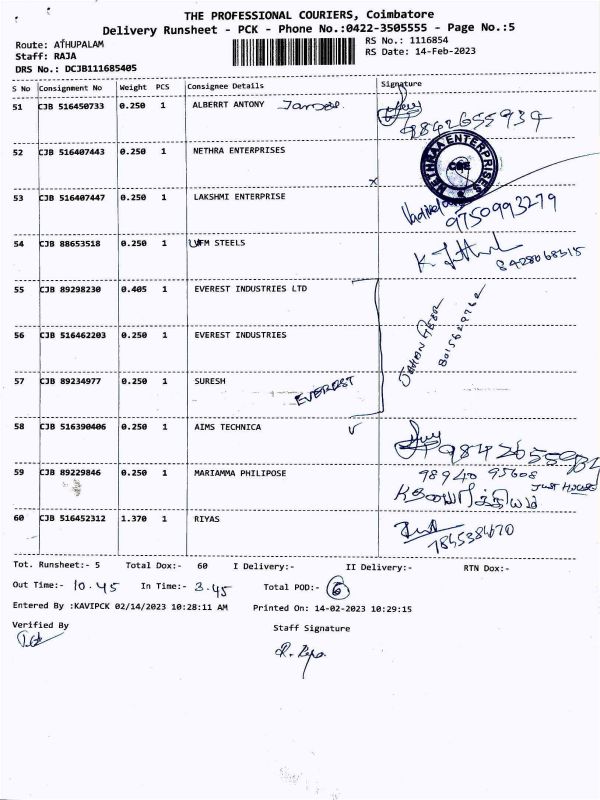 THE PROFESSIONAL COURIERS, Coimbatore
Delivery Runsheet - PCK - Phone No.:0422-3505555 - Page No.:5
Route: ATHUPALAM
RS No.: 1116854
Staff: RAJA
RS Date: 14-Feb-2023
DRS No.: DCJB111685405
S No Consignment No Weight PCS Consignee Details Signature
51 CJB 516450733 0.250 1 ALBERRT ANTONY
9842655934
52 CJB 516407443 0.250 1 NETHRA ENTERPRISES
NETHRAA ENTERPRISES
CBE
x
53 CJB 516407447 0.250 1 LAKSHMI ENTERPRISE
9750993279
54 CJB 88653518 0.250 1 LVFM STEELS
8428068315
55 CJB 89298230 0.405 1 EVEREST INDUSTRIES LTD
56 CJB 516462203 0.250 1 EVEREST INDUSTRIES
57 CJB 89234977 0.250 1 SURESH
EVEREST
58 CJB 516390406 0.250 1 AIMS TECHNICA
59 CJB 89229846 0.250 1 MARIAMMA PHILIPOSE
98940 95608
60 CJB 516452312 1.370 1 RIYAS
Tot. Runsheet:- 5 Total Dox:- 60 I Delivery:- II Delivery:- RTN Dox:-
Out Time:- 10.45 In Time:- 3.45 Total POD:- 6
Entered By :KAVIPCK 02/14/2023 10:28:11 AM Printed On: 14-02-2023 10:29:15
Verified By
Staff Signature